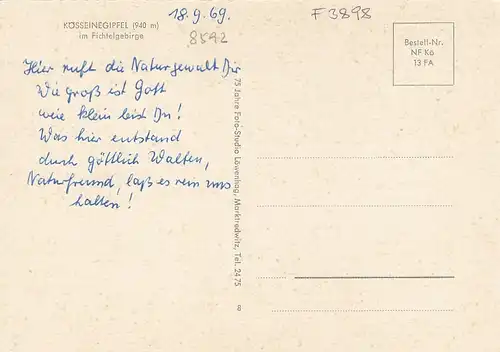 KÖSSEINEGIPFEL (940 m)
im Fichtelgebirge
18.9.69.
8592
F3898
Bestell-Nr.
NF Kö
13 FA
Hier ruft die Naturgewalt Dir
Wie groß ist Gott
wie klein bist Du!
Was hier entstand
durch göttlich Walten,
Naturfreund, laß es rein uns
halten!
75 Jahre Foto-Studio Löwenhag, Marktredwitz, Tel. 2475
8